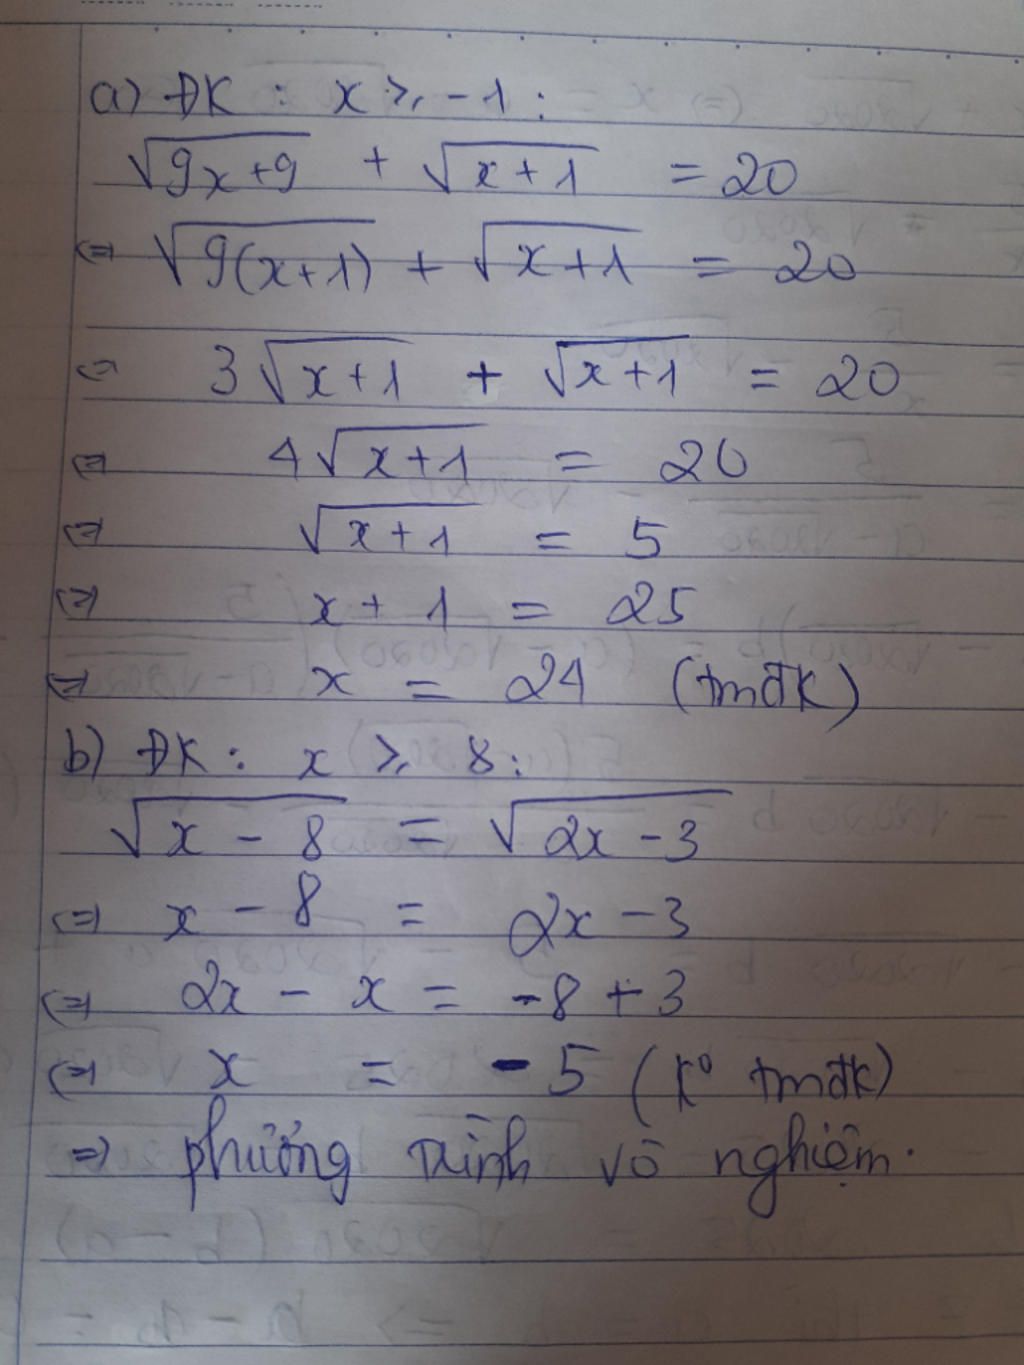 a) ĐK : x ⩾ -1 :
√(9x+9) + √(x+1) = 20
⇔ √(9(x+1)) + √(x+1) = 20
⇔ 3√(x+1) + √(x+1) = 20
⇔ 4√(x+1) = 20
⇔ √(x+1) = 5
⇔ x + 1 = 25
⇔ x = 24 (tmđk)
b) ĐK : x ⩾ 8 :
√(x - 8) = √(2x - 3)
⇔ x - 8 = 2x - 3
⇔ 2x - x = -8 + 3
⇔ x = -5 (k° tmđk)
⇒ phương trình vô nghiệm.